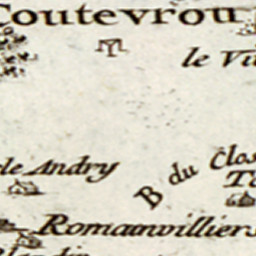 Coutevrou
le Vi
de Andry
B du Clos
Romainvilliers